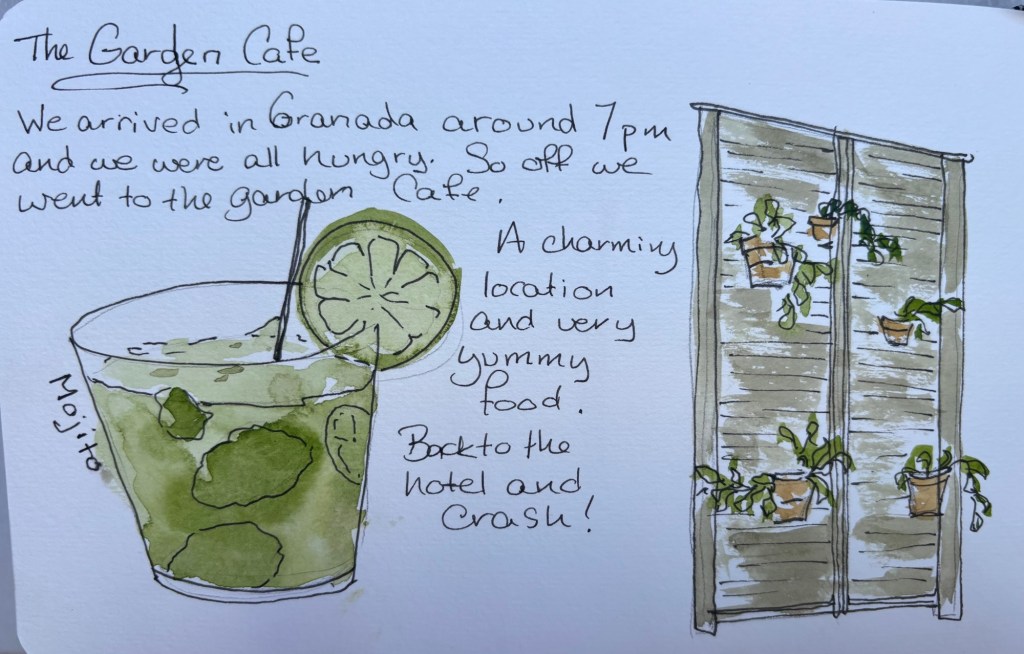 The Garden Cafe
We arrived in Granada around 7pm
and we were all hungry. So off we
went to the garden Cafe.
A charming
location
and very
yummy
food.
Back to the
hotel and
crash!
Mojito